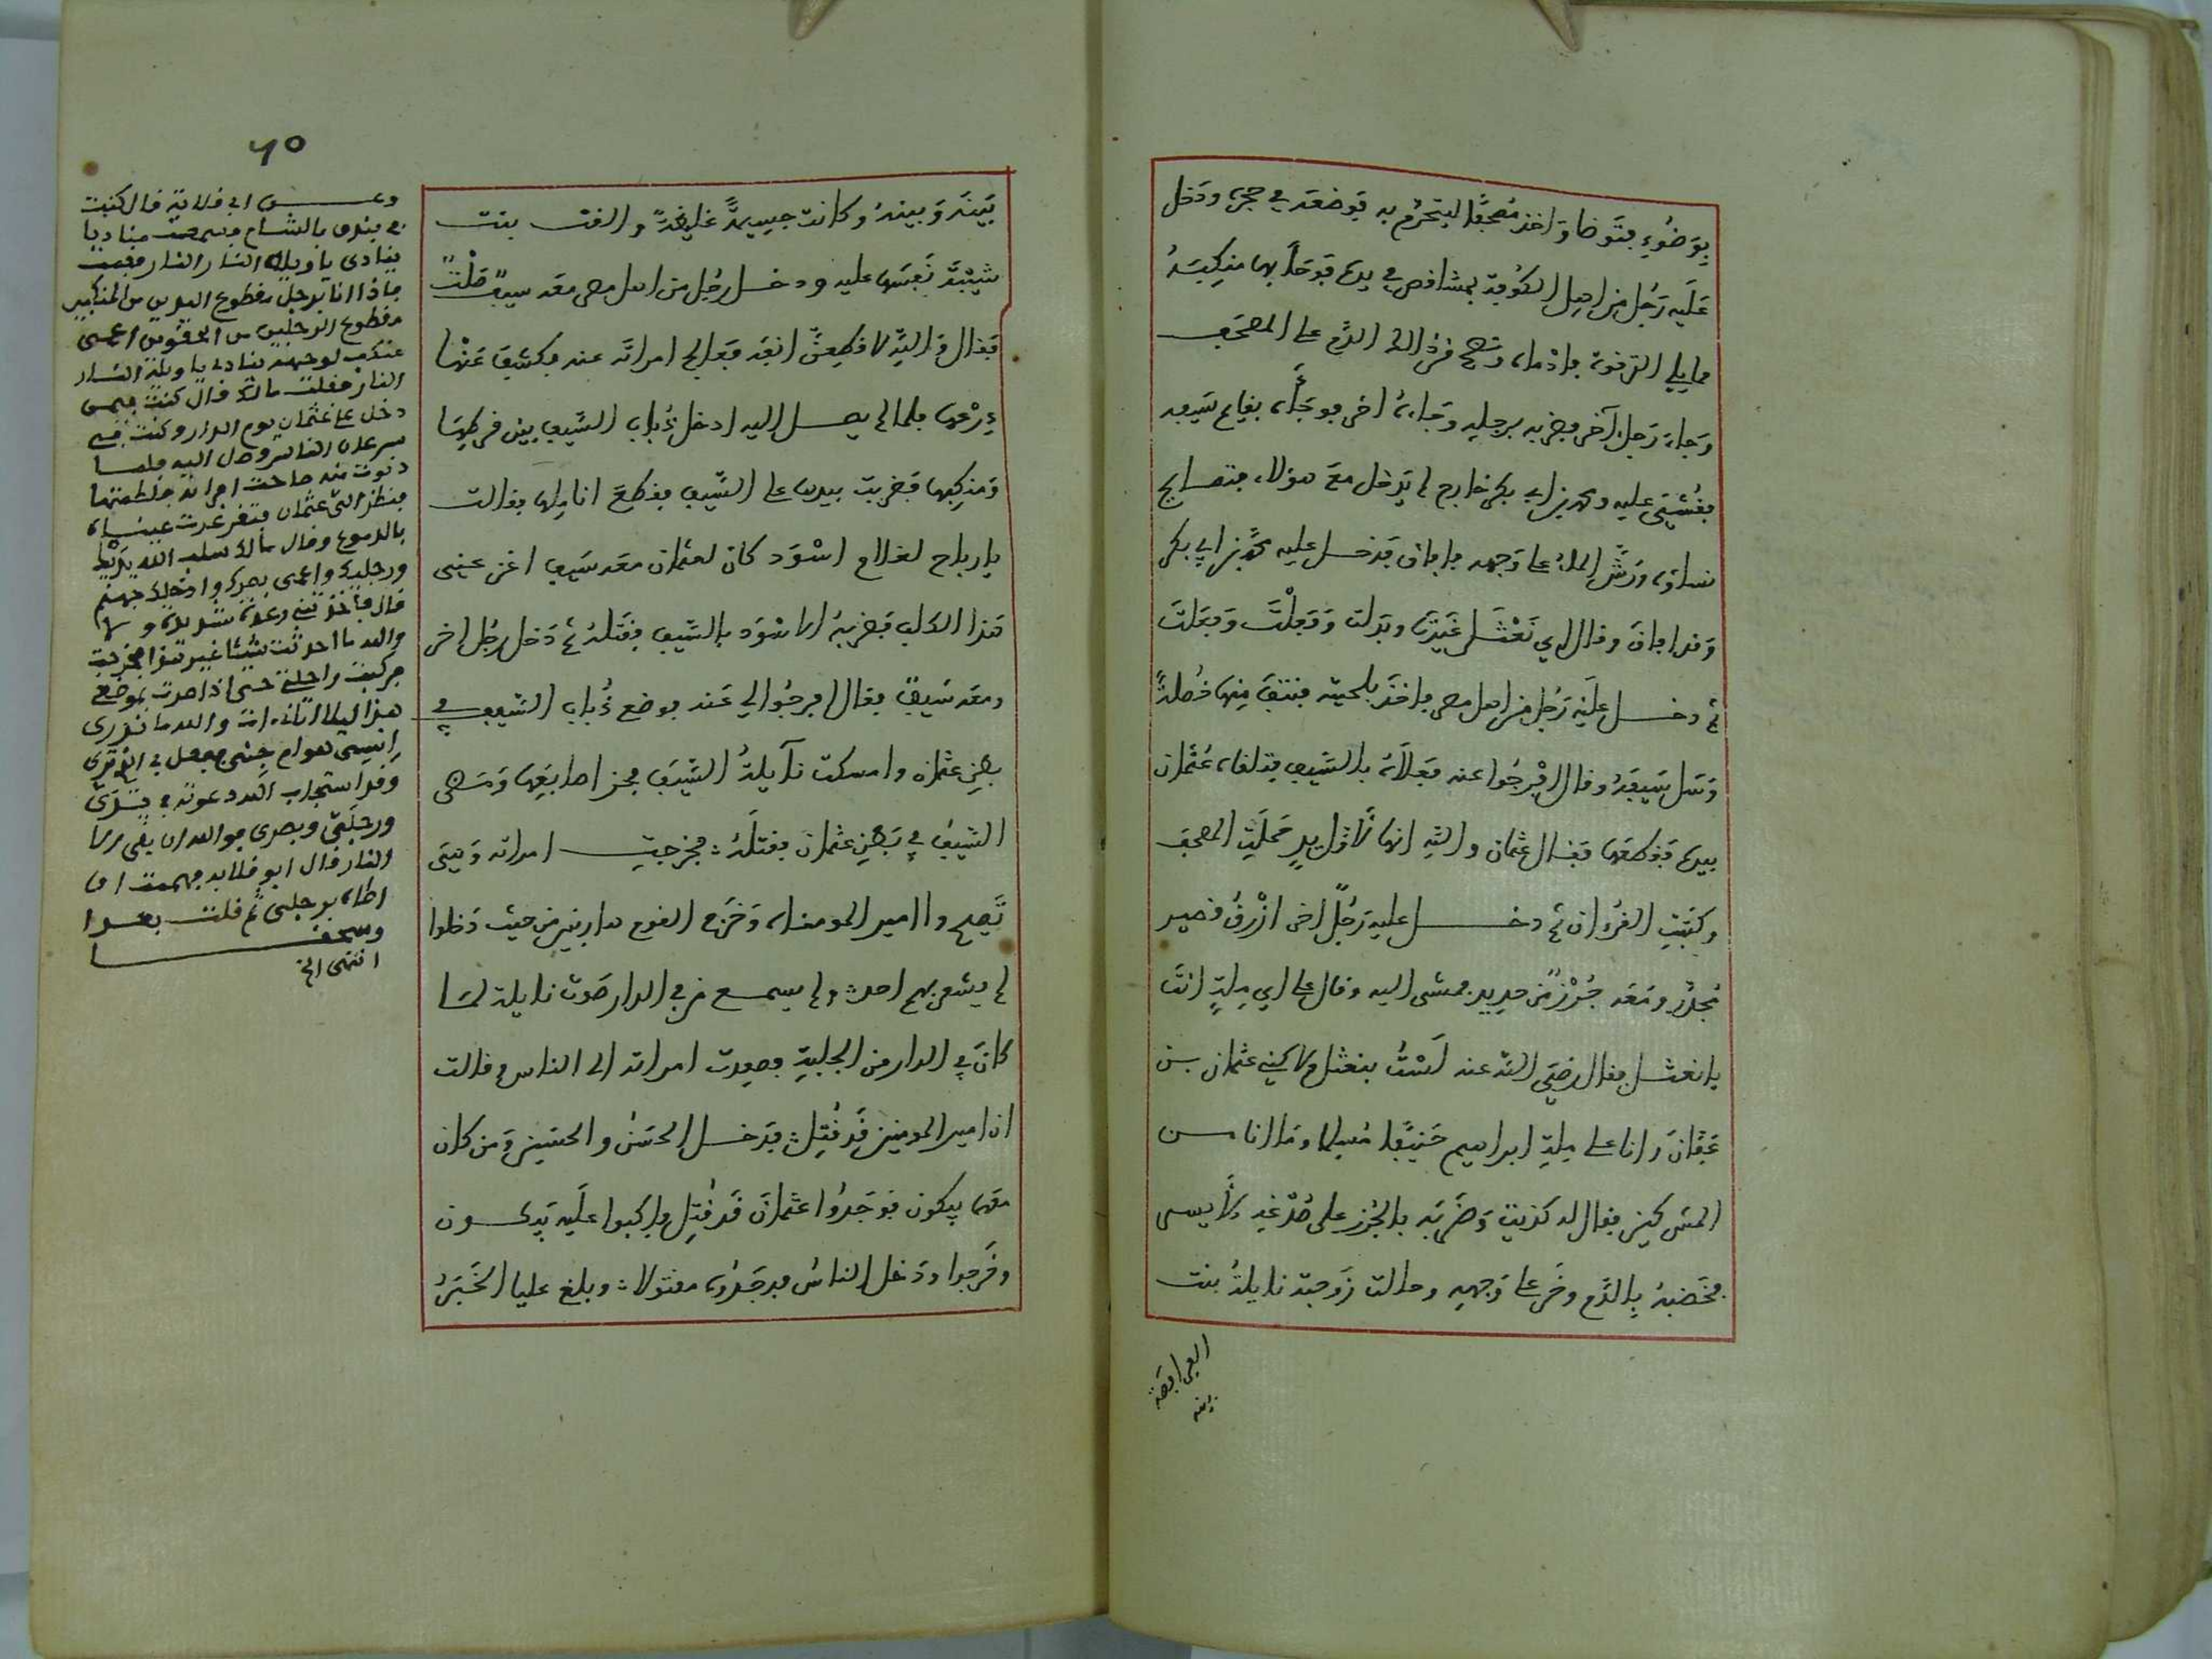 بِوَضُوءٍ فتَوضا وَاخذ مُصحَفًا ليتحرّم به فوضعَه في حجره ودَخل
عَلَيه رَجُل من اهل الكُوفة بمشاقص في يده فوَجَأ بها منكِبَهُ
مما يلي الترقوة فادْماه ونضح الدّم على المصحَف
وَجاءَ رَجل آخر فضربه برجله وَجاءهُ اخر فوجَأه بقايم سَيفه
فغُشِيَ عليه ومحمد بن ابي بكر خارج لم يَدخل معَ هؤلاء فتصايح
نساؤه وَرُشّ الماء على وَجهه فافاق فدخل عليه محمّد بن ابي بكر
وَقد افاقَ وقال اي نَعْثَل غَيّرتَ وبَدلت وَفعلْتَ وَفعَلتَ
ثم دخل عَلَيْه رَجُل من اهل مصر فاخذ بلحيته فنتفَ مِنها خُصلةً
وَسَل سَيفهُ وقال افْرِجُوا عنه فعَلَاهُ بالسَيف فتلقاه عُثمَان
بيده فقطعَها فقال عثمان والله انها لَأَوّل يدٍ خطّتِ المصحف
وكتبَتِ القرءان ثم دخل عليه رَجُلٌ اخر ازْرقُ قصير
مُجدّر ومَعَه جُرْزٌ من حديد فمشى اليه وقال على اي مِلةٍ انتَ
يا نعثل فقال رَضي الله عنه لَسْتُ بنعثل ولاكني عثمان بن
عَفّانَ وانا على مِلةِ ابراهيم حَنيفًا مُسلما وَما انا من
المشركين فقال له كذبت وَضَربَه بالجُرز على صُدْغه الأيسر
فخضبهُ بالدَّم وخَرّ على وَجهه وحالت زَوجته نايلةُ بنت
الفرافصة
٦٥
بَينَه وَبينهُ وكانت جسِيمةً غليظةً والقت بنت
شيْبَةَ نَفسَها عليه ودخل رجُل من اهل مصر معَه سيفٌ صَلْتٌ
فقال والله لاقطعنّ انفه فعالج امراتَه عنه فكشفَ عَنْها
دِرْعها فلما لم يصل اليه ادخل ذُباب السّيف بين قرطِها
وَمنكِبها فضربت بيدها على السّيف فقطعَ اناملها فقالت
يا رباح لغلام اسْوَد كان لعثمان معَه سَيف اغن عني
هَذا الكلب فضربهُ الاسْوَد بالسّيف فقتَلهُ ثم دَخل رجُل اخر
ومعَه سَيفٌ فقال افرجُوا لي عَنه فوضع ذُباب السّيف في
بطن عثمان وامسكت نآيلةُ السّيفَ فحز اصابعَها وَمضى
السّيفُ في بَطنِ عثمان فقتلَهُ فخرجت امراته وَهيَ
تَصيح وا امير المومناه وَخرَج القوم هاربين من حيث دَخلوا
لم يشعر بهم احدٌ ولم يسمع من في الدار صَوت نايلة لما
كانَ في الدار من الجلبة فصعدت امراته الى الناس وقالت
ان امير المومنين قَد قُتِل فدخل الحسَن والحسَين وَمن كان
معَهما يبكون فوَجَدُوا عثمانَ قَد قُتِل فاكبوا علَيه يَبكون
وخَرجوا ودَخل الناسُ فوجَدُوه مقتولا وبلغ عليا الخبَرُ
وعن ابي قلابة قال كنت
في فندق بالشام فسمعت مناديا
ينادى ياويله النار النار فقمت
فاذا انا برجل مقطوع اليدين من المنكبين
مقطوع الرجلين من الحقوين اعمى
منكب لوجهه ينادي ياويله النار
النار فقلت مالك قال كنت فيمن
دخل على عثمان يوم الدار وكنت في
سرعان الناس وصل اليه فلما
دنوت منه صاحت امراته فلطمتها
فنظر الي عثمان فتغرغرت عيناه
بالدموع وقال مالك سلب الله يديك
ورجليك واعمى بصرك وادخلك جهنم
قال فاخذتني رعدة شديدة ولا
والله ما احدثت شيئا غير هذا فخرجت
فركبت راحلتي حتى اذا صرت بموضعي
هذا ليلا اتاني ات والله ما ندري
انسي هو ام جني ففعل بي الذي ترى
وقد استجاب الله دعوته في يدي
ورجلي وبصري فوالله ان بقى الا
النار قال ابو قلابه فهممت ان
اطاه برجلي ثم قلت بعدا
وسحقا
انتهى